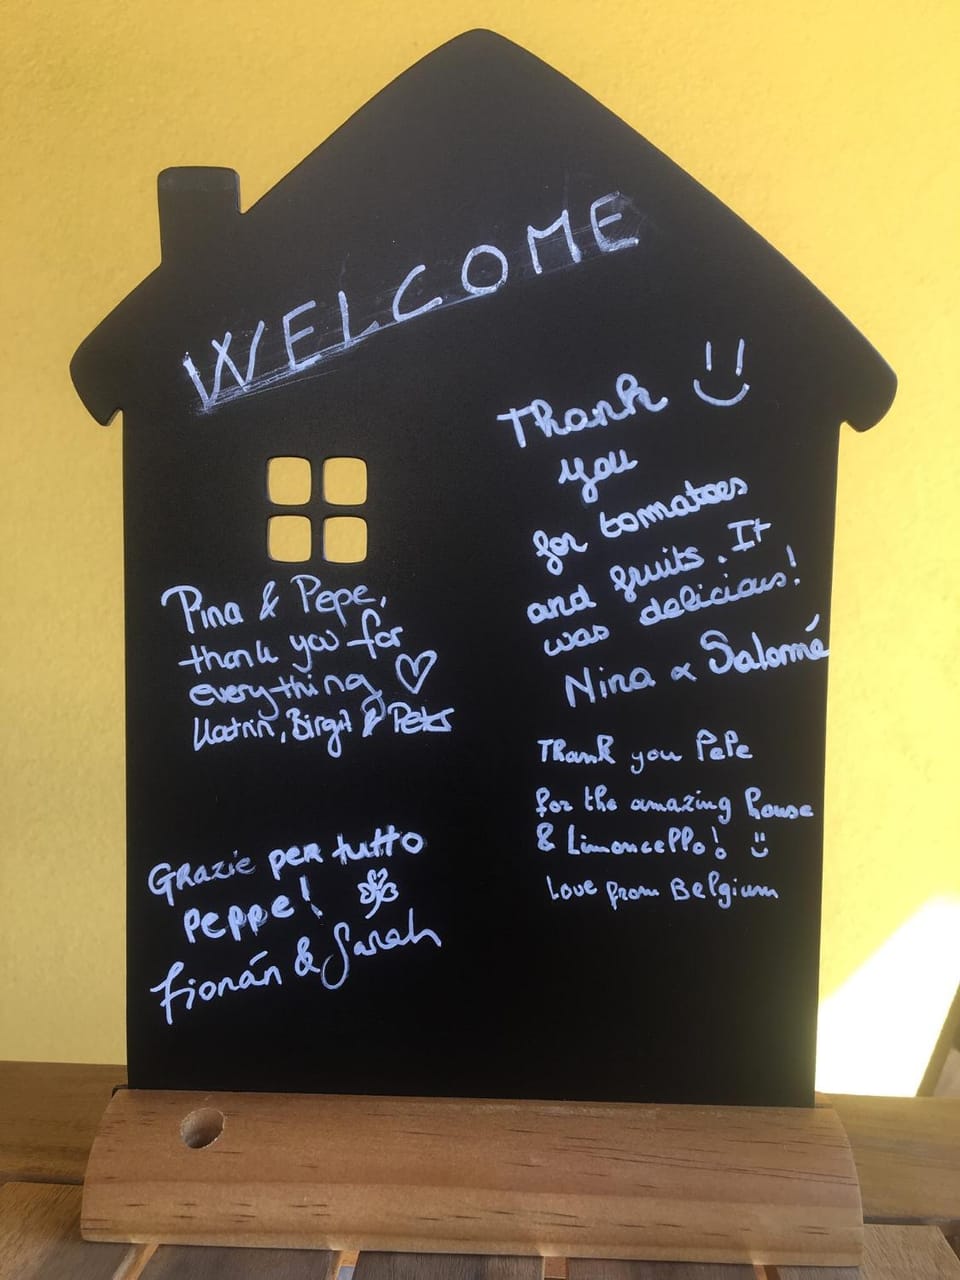 WELCOME
Thank
you
for tomatoes
and fruits. It
was delicious!
Nina & Salomé
Pina & Pepe,
thank you for
everything
Katrin, Birgit & Peter
Thank you PePe
for the amazing house
& Limoncello!
Love from Belgium
Grazie per tutto
Peppe!
Fionán & Sarah